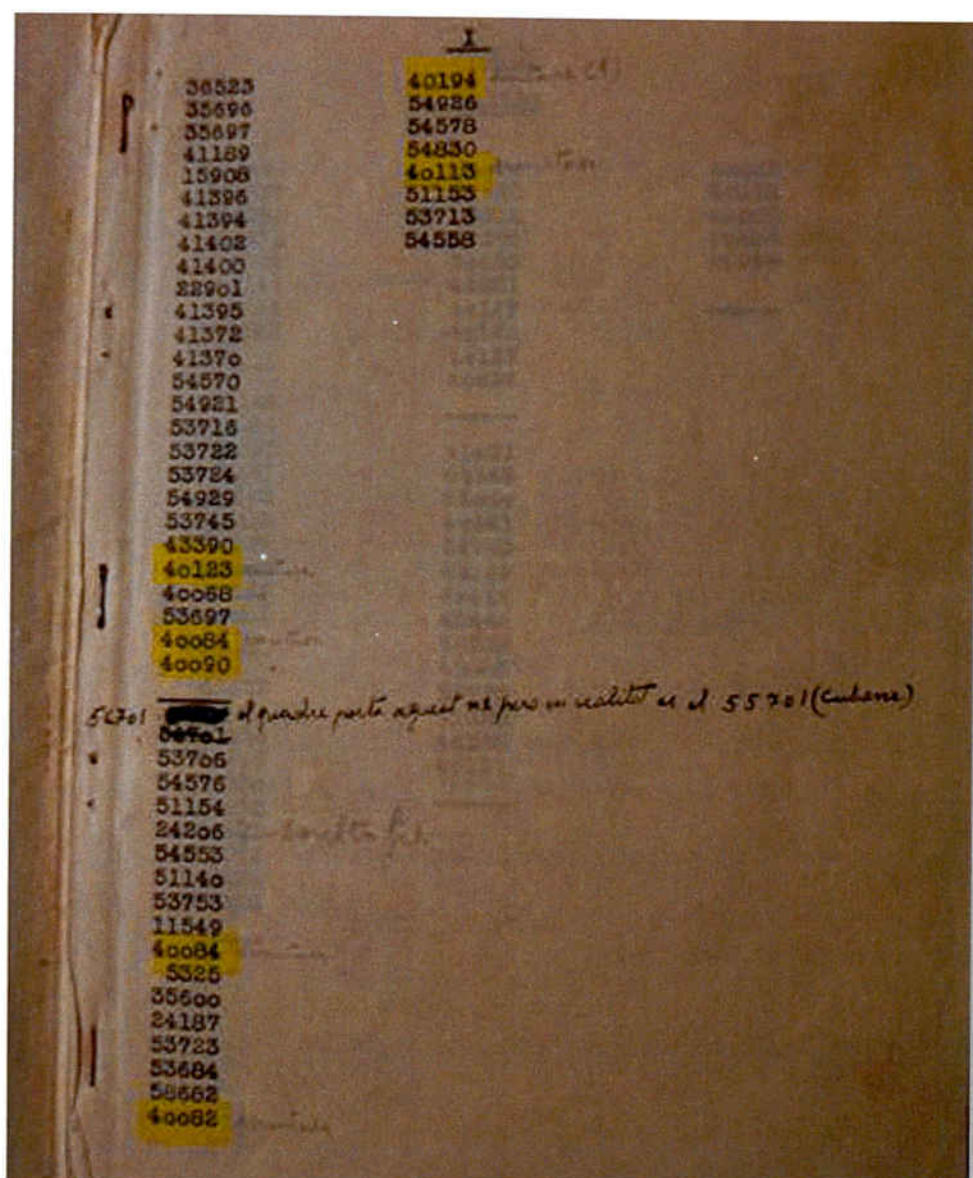 I
36523
35696
35697
41189
15908
41396
41394
41402
41400
22901
41395
41372
41370
54570
54921
53716
53722
53724
54929
53745
43390
40123
40068
53697
40084
40090
56701 el quadre porta aquest nº pero en realitat es el 55701 (Cubano)
53706
54576
51154
24206
54553
51140
53753
11549
40084
5325
35600
24187
53723
53684
58682
40082
40194
54926
54578
54830
40113
51153
53713
54558